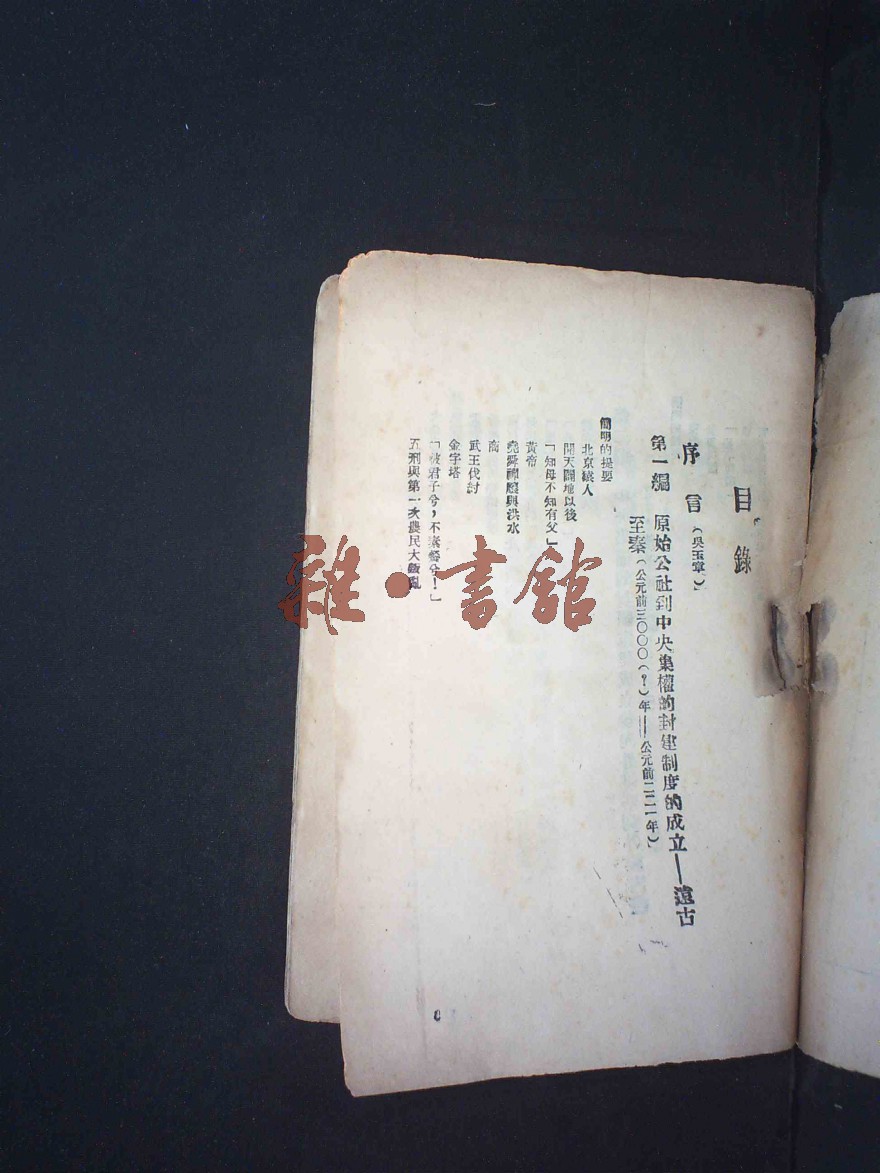 目錄
序言（吳玉章）
第一編 原始公社到中央集權的封建制度的成立——遠古
至秦（公元前三〇〇〇（？）年——公元前二二一年）
簡明的提要
北京猿人
開天闢地以後
「知母不知有父」
黃帝
堯舜禪讓與洪水
商
武王伐討
金字塔
「彼君子兮，不素餐兮！」
五刑與第一次農民大叛亂
雜·書館